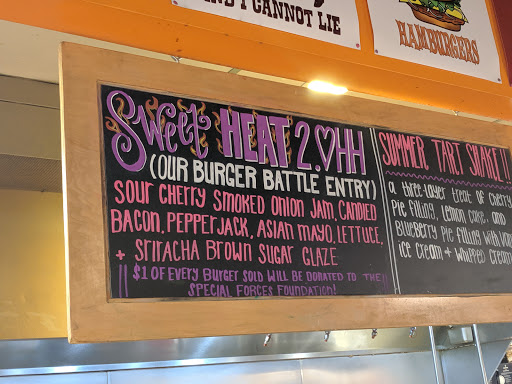 AND I CANNOT LIE
HAMBURGERS
SWEET HEAT 2.♡HH
(OUR BURGER BATTLE ENTRY)
SOUR CHERRY SMOKED ONION JAM, CANDIED
BACON, PEPPERJACK, ASIAN MAYO, LETTUCE,
+ SRIRACHA BROWN SUGAR GLAZE
$1 OF EVERY BURGER SOLD WILL BE DONATED TO THE
SPECIAL FORCES FOUNDATION!
SUMMER TART SHAKE!!
a three layer treat of cherry
Pie filling, Lemon cake, and
Blueberry Pie filling with
ice cream + whipped cream